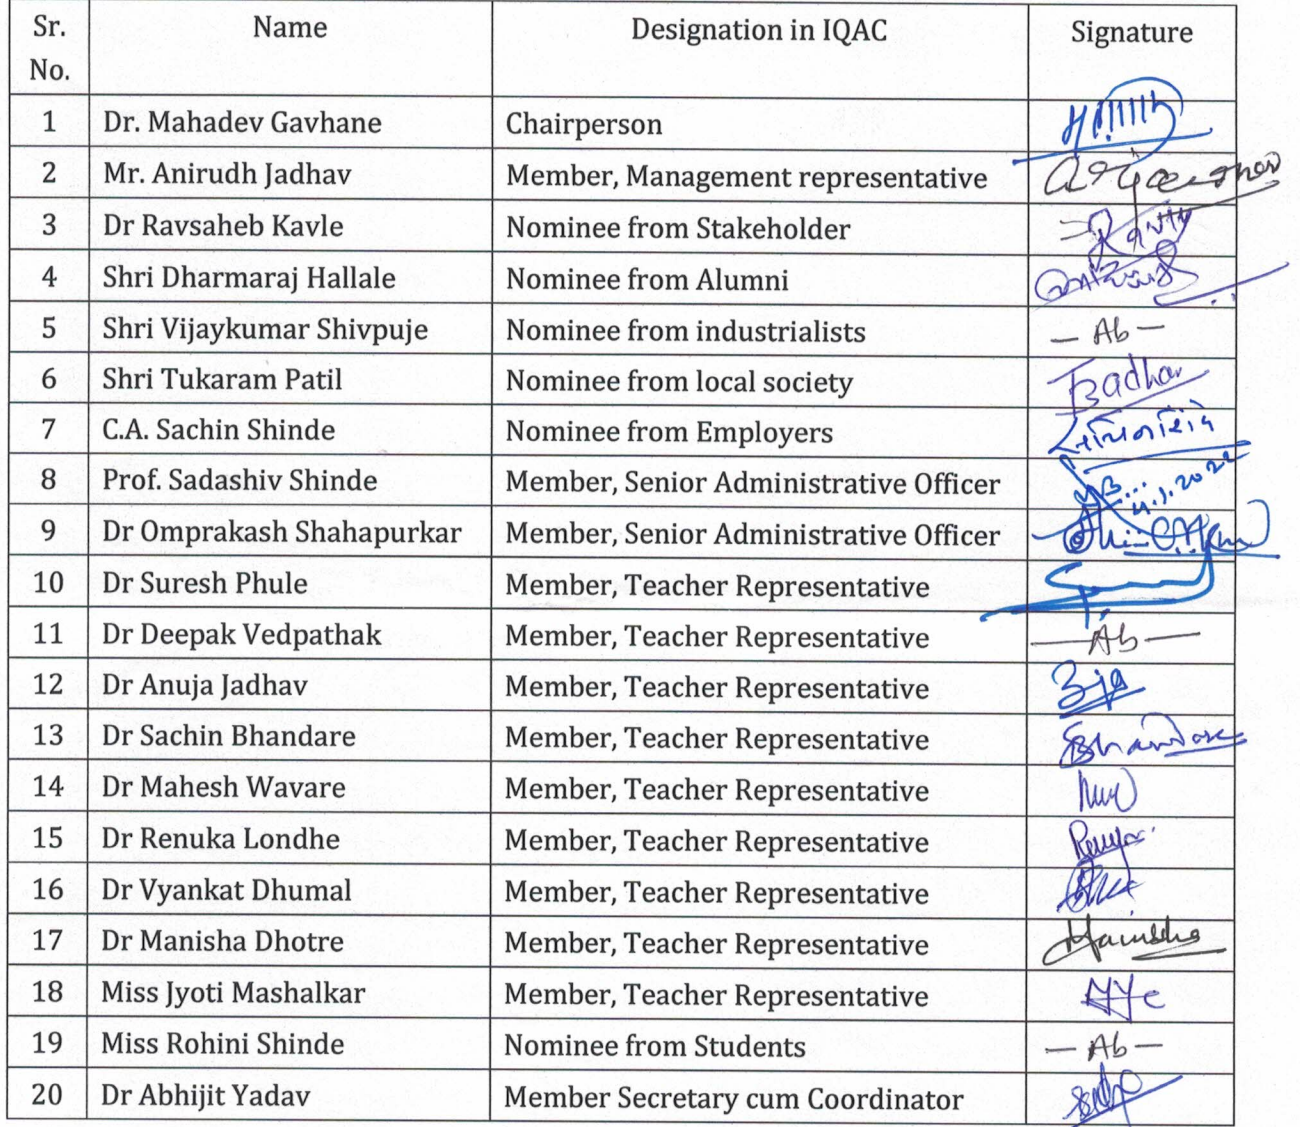 Sr. No. Name Designation in IQAC Signature
1 Dr. Mahadev Gavhane Chairperson
2 Mr. Anirudh Jadhav Member, Management representative
3 Dr Ravsaheb Kavle Nominee from Stakeholder
4 Shri Dharmaraj Hallale Nominee from Alumni
5 Shri Vijaykumar Shivpuje Nominee from industrialists — Ab —
6 Shri Tukaram Patil Nominee from local society
7 C.A. Sachin Shinde Nominee from Employers
8 Prof. Sadashiv Shinde Member, Senior Administrative Officer
9 Dr Omprakash Shahapurkar Member, Senior Administrative Officer
10 Dr Suresh Phule Member, Teacher Representative
11 Dr Deepak Vedpathak Member, Teacher Representative — Ab —
12 Dr Anuja Jadhav Member, Teacher Representative
13 Dr Sachin Bhandare Member, Teacher Representative
14 Dr Mahesh Wavare Member, Teacher Representative
15 Dr Renuka Londhe Member, Teacher Representative
16 Dr Vyankat Dhumal Member, Teacher Representative
17 Dr Manisha Dhotre Member, Teacher Representative
18 Miss Jyoti Mashalkar Member, Teacher Representative
19 Miss Rohini Shinde Nominee from Students — Ab —
20 Dr Abhijit Yadav Member Secretary cum Coordinator